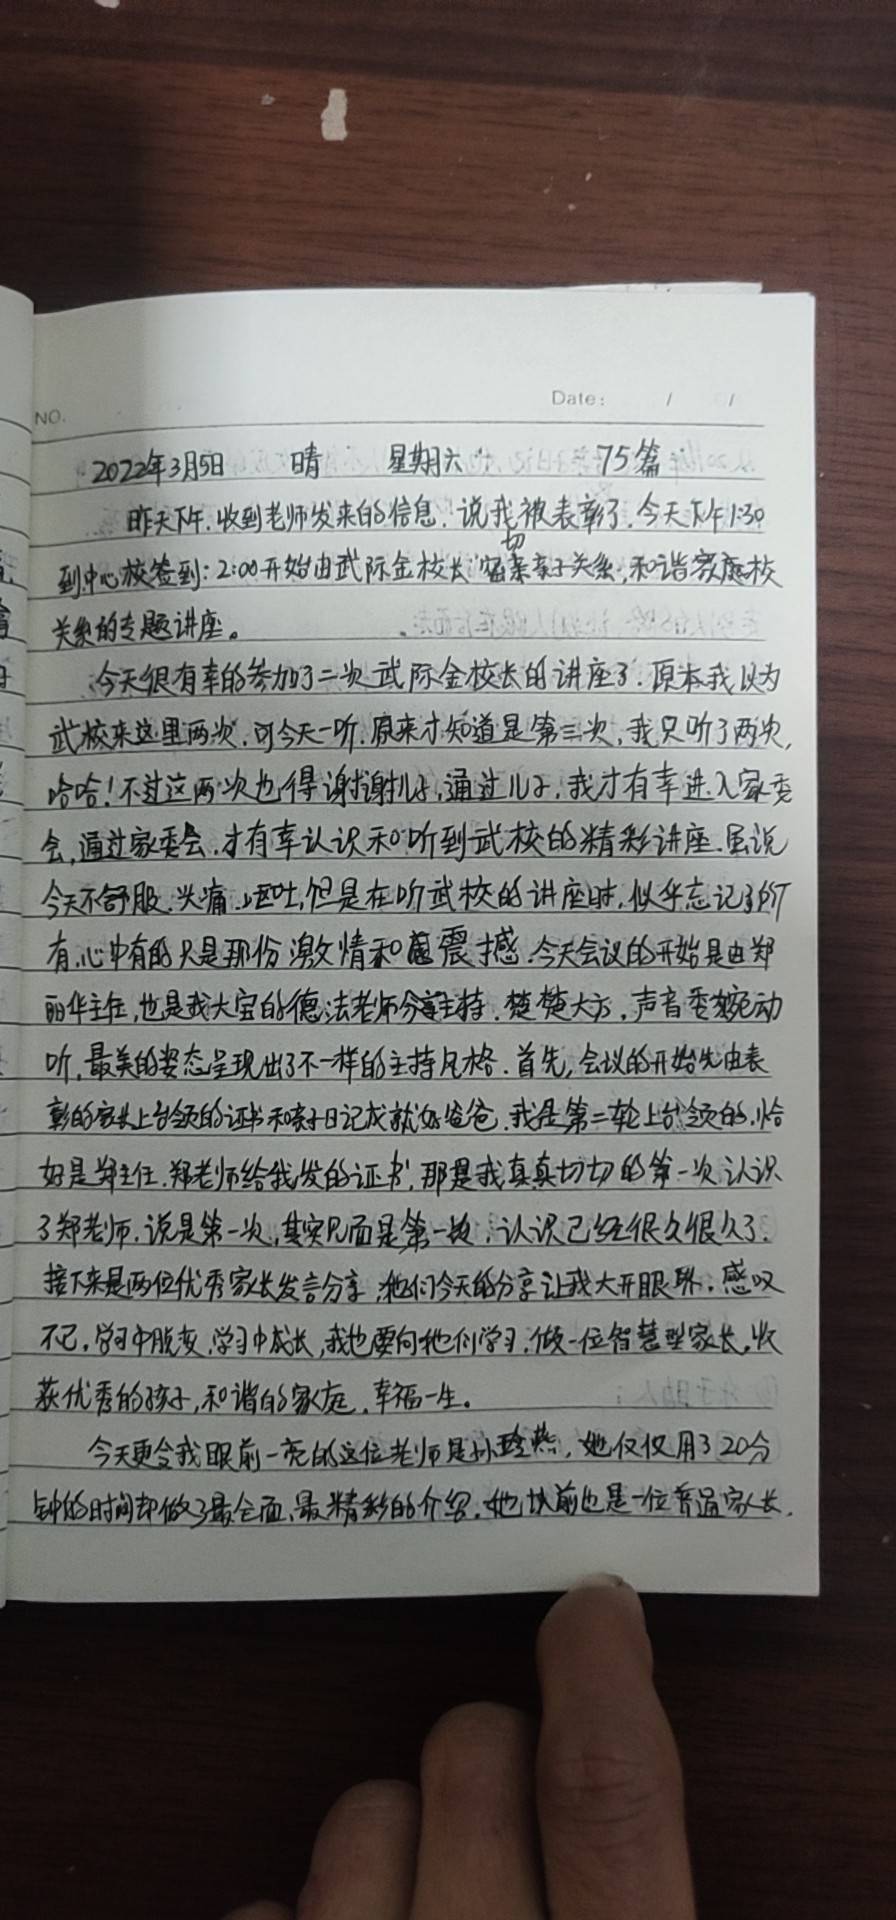 NO.
Date: / /
2022年3月5日 晴 星期六 75篇
昨天下午.收到老师发来的信息.说我被表彰了.今天下午1:30
到中心校签到:2:00开始由武际金校长"密切亲子关系,和谐家庭校
关系的专题讲座。
今天很有幸的参加了二次武际金校长的讲座了.原本我以为
武校来这里两次,可今天一听.原来才知道是第三次,我只听了两次,
哈哈!不过这两次也得谢谢儿子,通过儿子,我才有幸进入家委
会,通过家委会.才有幸认识和听到武校的精彩讲座.虽说
今天不舒服.头痛.呕吐,但是在听武校的讲座时,似乎忘记了所
有,心中有的只是那份激情和震撼.今天会议的开始是由郑
丽华主任,也是我大宝的德法老师主持.楚楚大方,声音委婉动
听,最美的姿态呈现出了不一样的主持风格.首先,会议的开始先由表
彰的家长上台领的证书和亲子日记成就好爸爸.我是第二轮上台领的.恰
好是郑主任.郑老师给我发的证书,那是我真真切切的第一次认识
了郑老师.说是第一次,其实见面是第一次,认识已经很久很久了.
接下来是两位优秀家长发言分享,他们今天的分享让我大开眼界.感叹
不已,学习中脱变,学习中成长,我也要向他们学习.做一位智慧型家长,收
获优秀的孩子,和谐的家庭,幸福一生。
今天更令我眼前一亮的这位老师是孙燕,她仅仅用了20分
钟的时间却做了最全面、最精彩的介绍.她以前也是一位普通家长,